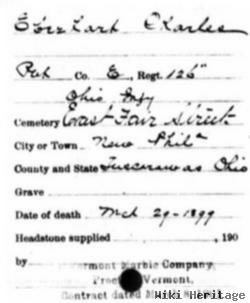 Eberhart Charles
Pvt Co. E, Regt. 126"
Ohio, Infy
Cemetery East Fair Street
City or Town New Phila
County and State Tuscarawas Ohio
Grave
Date of death Mch 29-1899
Headstone supplied , 190
by Vermont Marble Company,
Proctor, Vermont.
Contract dated
Wiki Heritage